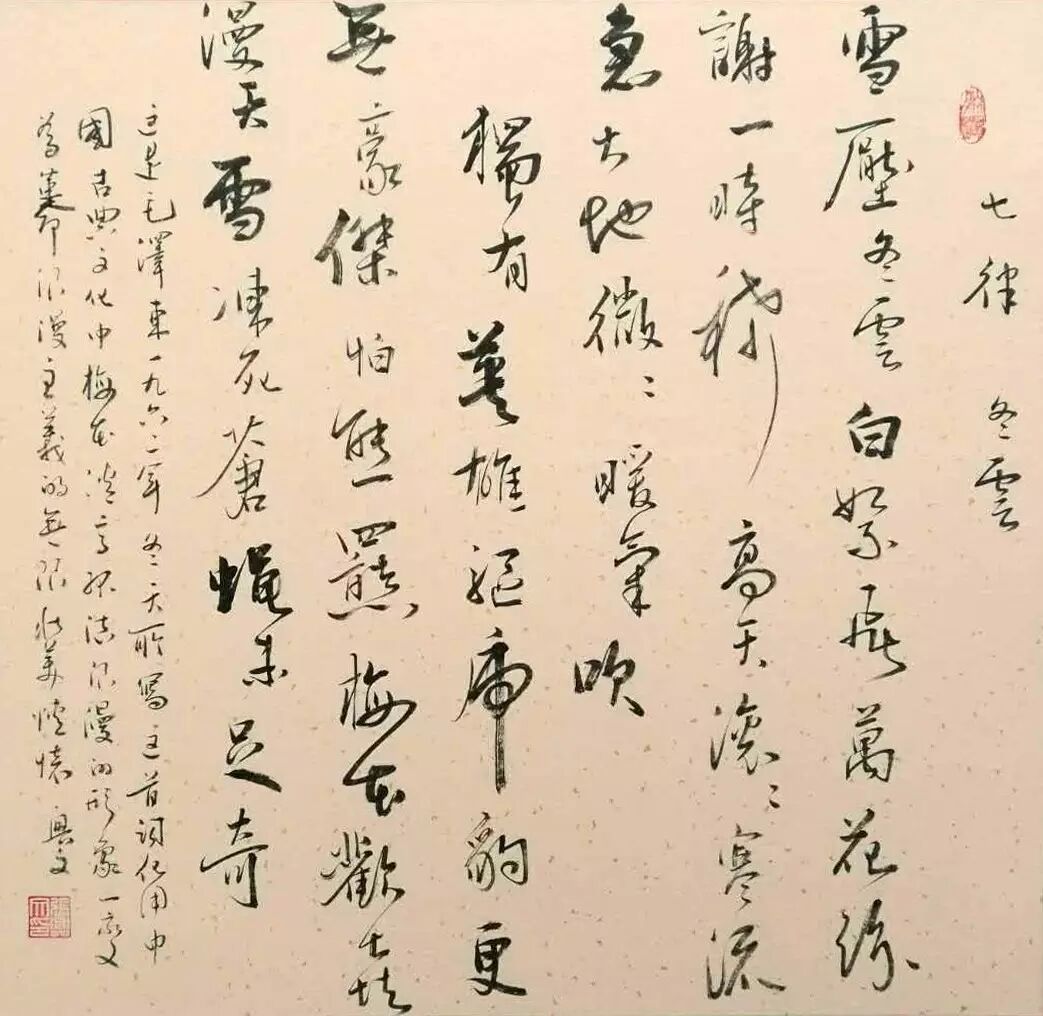 七律 冬雲
雪壓冬雲白絮飛萬花紛
謝一時稀 高天滾〻寒流
急大地微〻暖氣吹
獨有英雄驅虎豹更
無豪傑怕熊羆梅花歡喜
漫天雪凍死蒼蠅未足奇
這是毛澤東一九六二年冬天所寫這首詞化用中
國古典文化中梅花清高孤潔浪漫的形象一
為革命浪漫主義的無限壯美情懷 興文